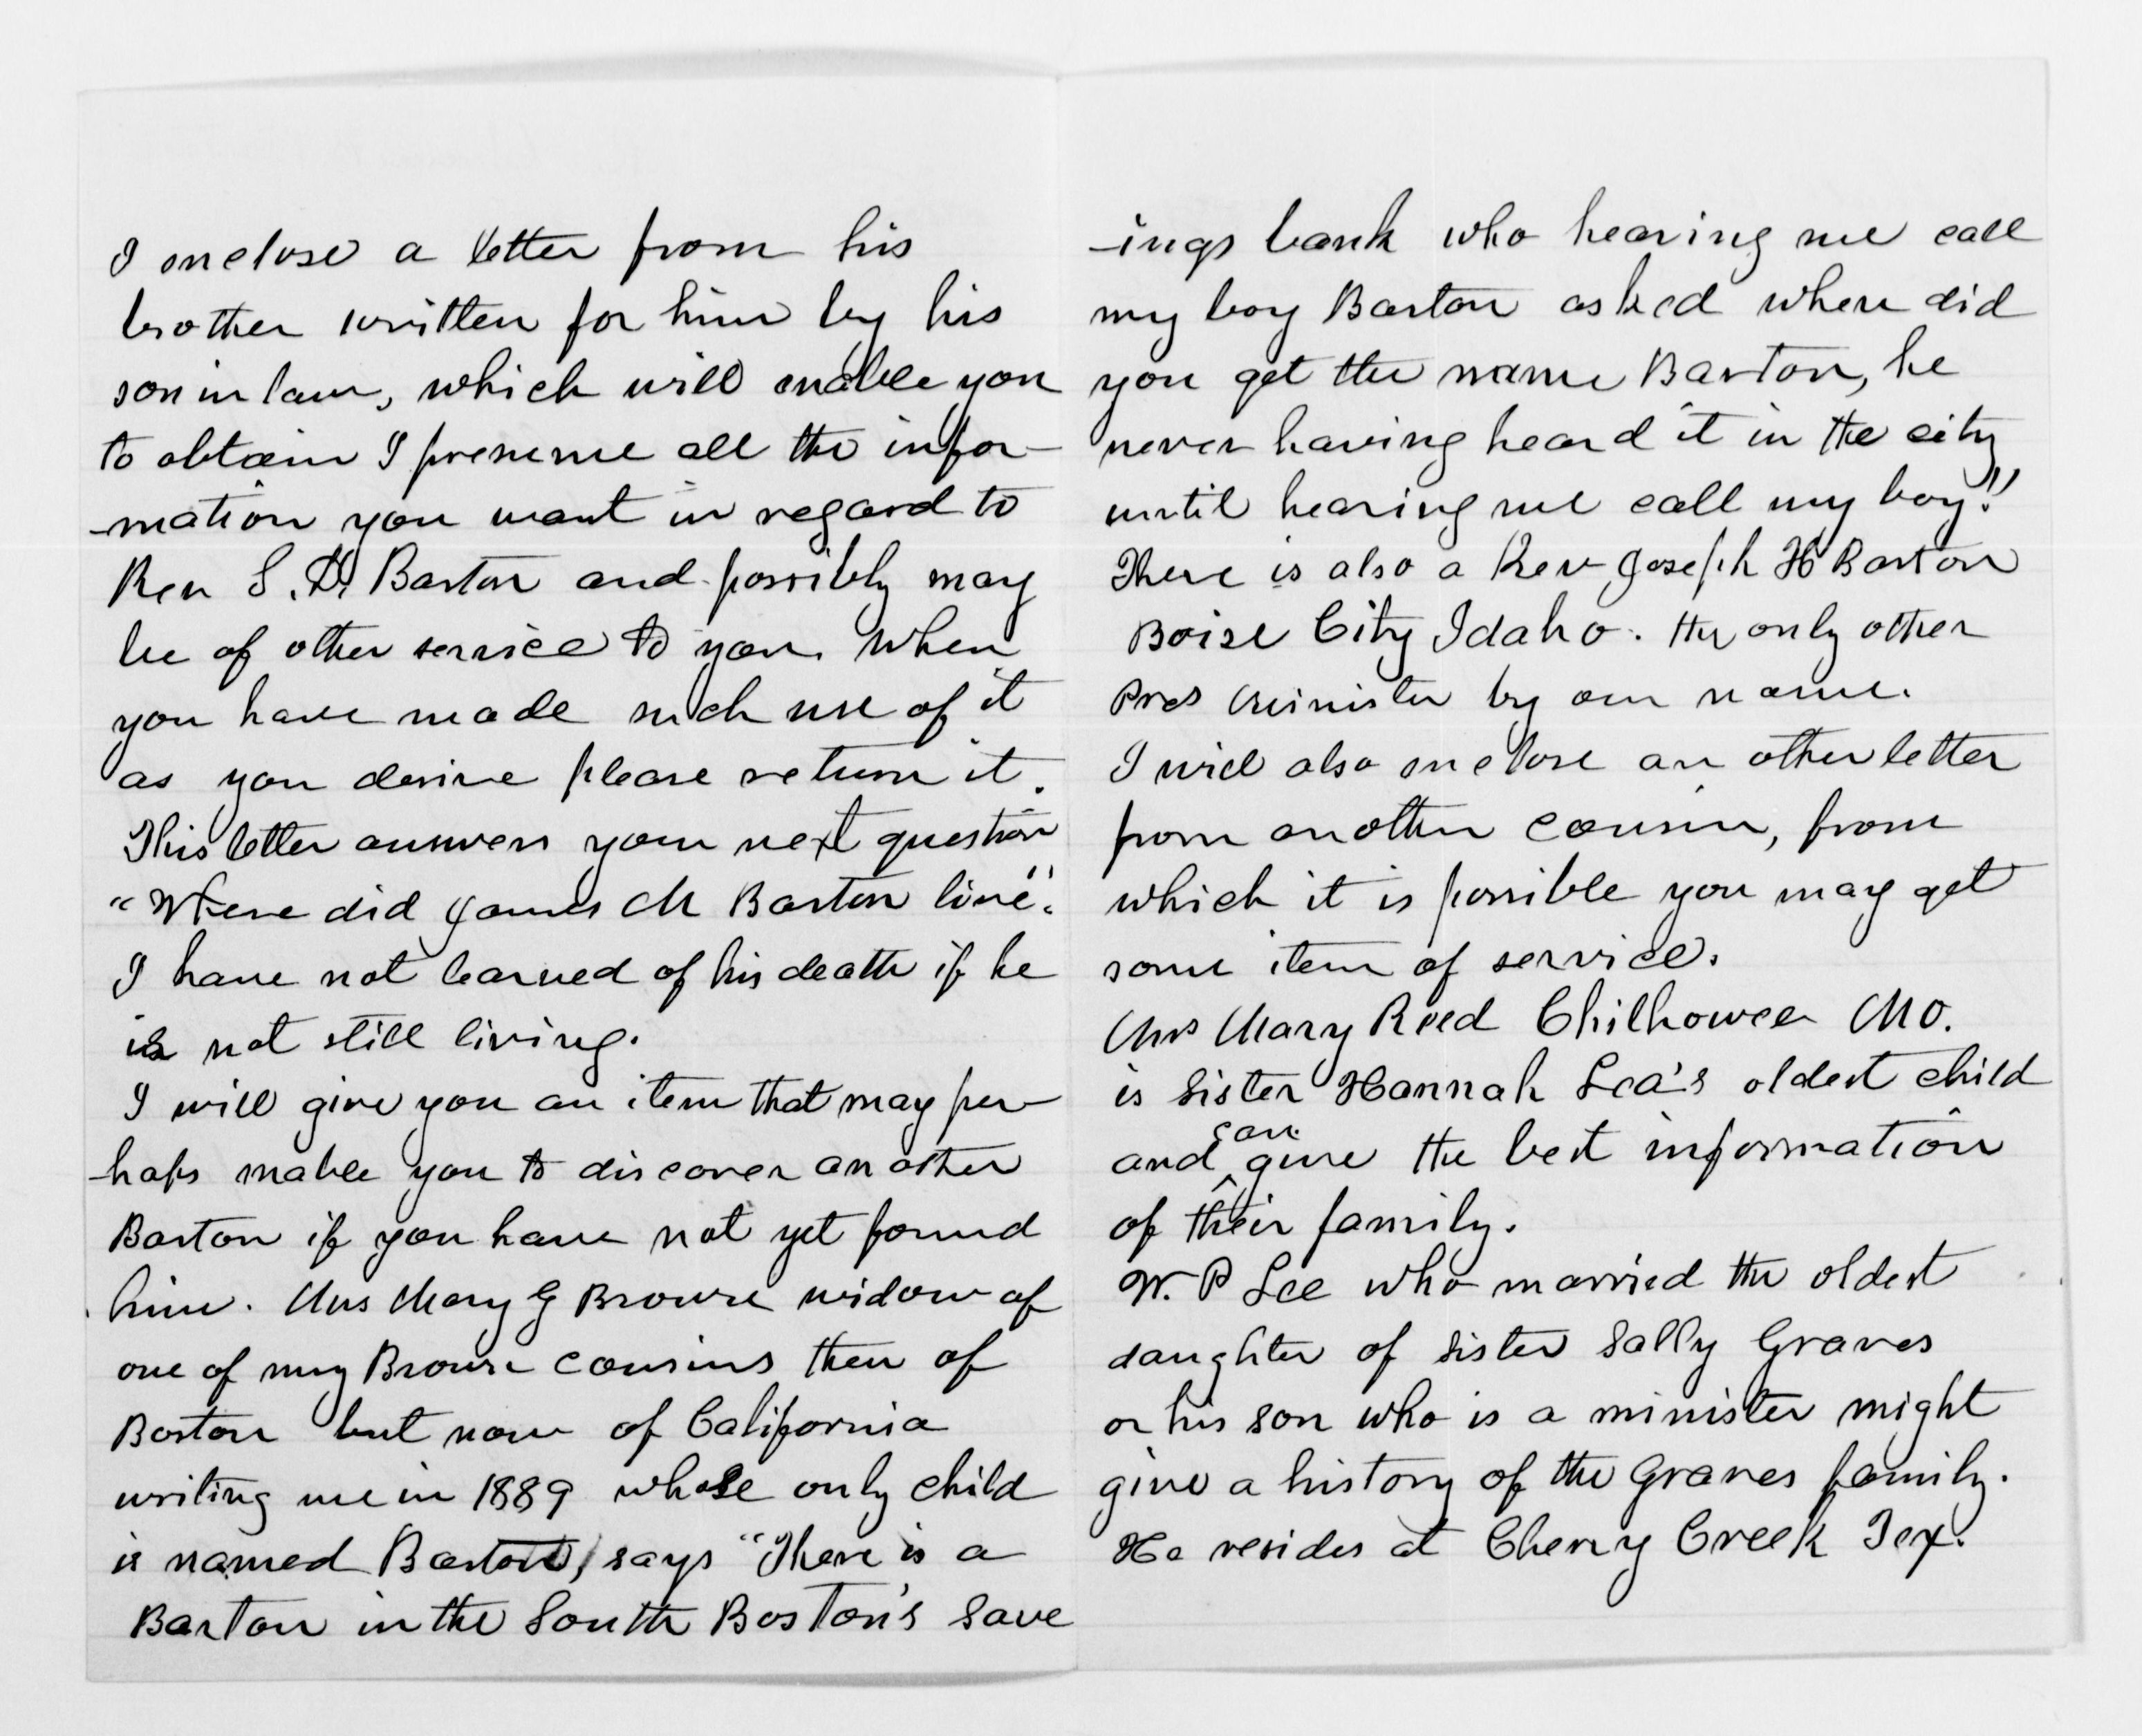 I enclose a letter from his
brother written for him by his
son in law, which will enable you
to obtain I presume all the infor-
-mation you want in regard to
Rev S. D. Barton and possibly may
be of other service to you. When
you have made such use of it
as you desire please return it.
This letter answers your next question
"Where did James M Barton live".
I have not learned of his death if he
is not still living.
I will give you an item that may per-
-haps enable you to discover an other
Barton if you have not yet found
him. Mrs Mary G Browne widow of
one of my Browne cousins then of
Boston but now of California
writing me in 1889 whose only child
is named Barton, says "There is a
Barton in the South Boston's Save
-ings bank who hearing me call
my boy Barton asked where did
you get the name Barton, he
never having heard it in the city
until hearing me call my boy."
There is also a Rev Joseph H Barton
Boise City Idaho. the only other
Pres Minister by our name.
I will also enclose an other letter
from another cousin, from
which it is possible you may get
some item of service.
Mrs Mary Reed Chilhowee MO.
is Sister Hannah Lea's oldest child
and can give the best information
of their family.
W. P Lee who married the oldest
daughter of Sister Sally Graves
or his son who is a minister might
give a history of the Graves family.
He resides at Cherry Creek Tex.